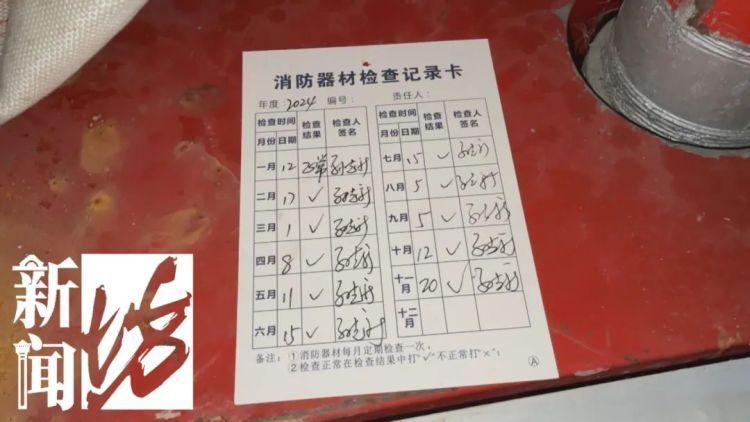 消防器材检查记录卡
年度：2024 编号： 责任人：
检查时间 检查结果 检查人签名
月份 日期
一月 12 正常
二月 17 ✓
三月 1 ✓
四月 8 ✓
五月 11 ✓
六月 15 ✓
检查时间 检查结果 检查人签名
月份 日期
七月 15 ✓
八月 5 ✓
九月 5 ✓
十月 12 ✓
十一月 20 ✓
十二月
备注：①消防器材每月定期检查一次，
②检查正常在检查结果中打"✓"不正常打"×"；
Ⓐ
新闻坊